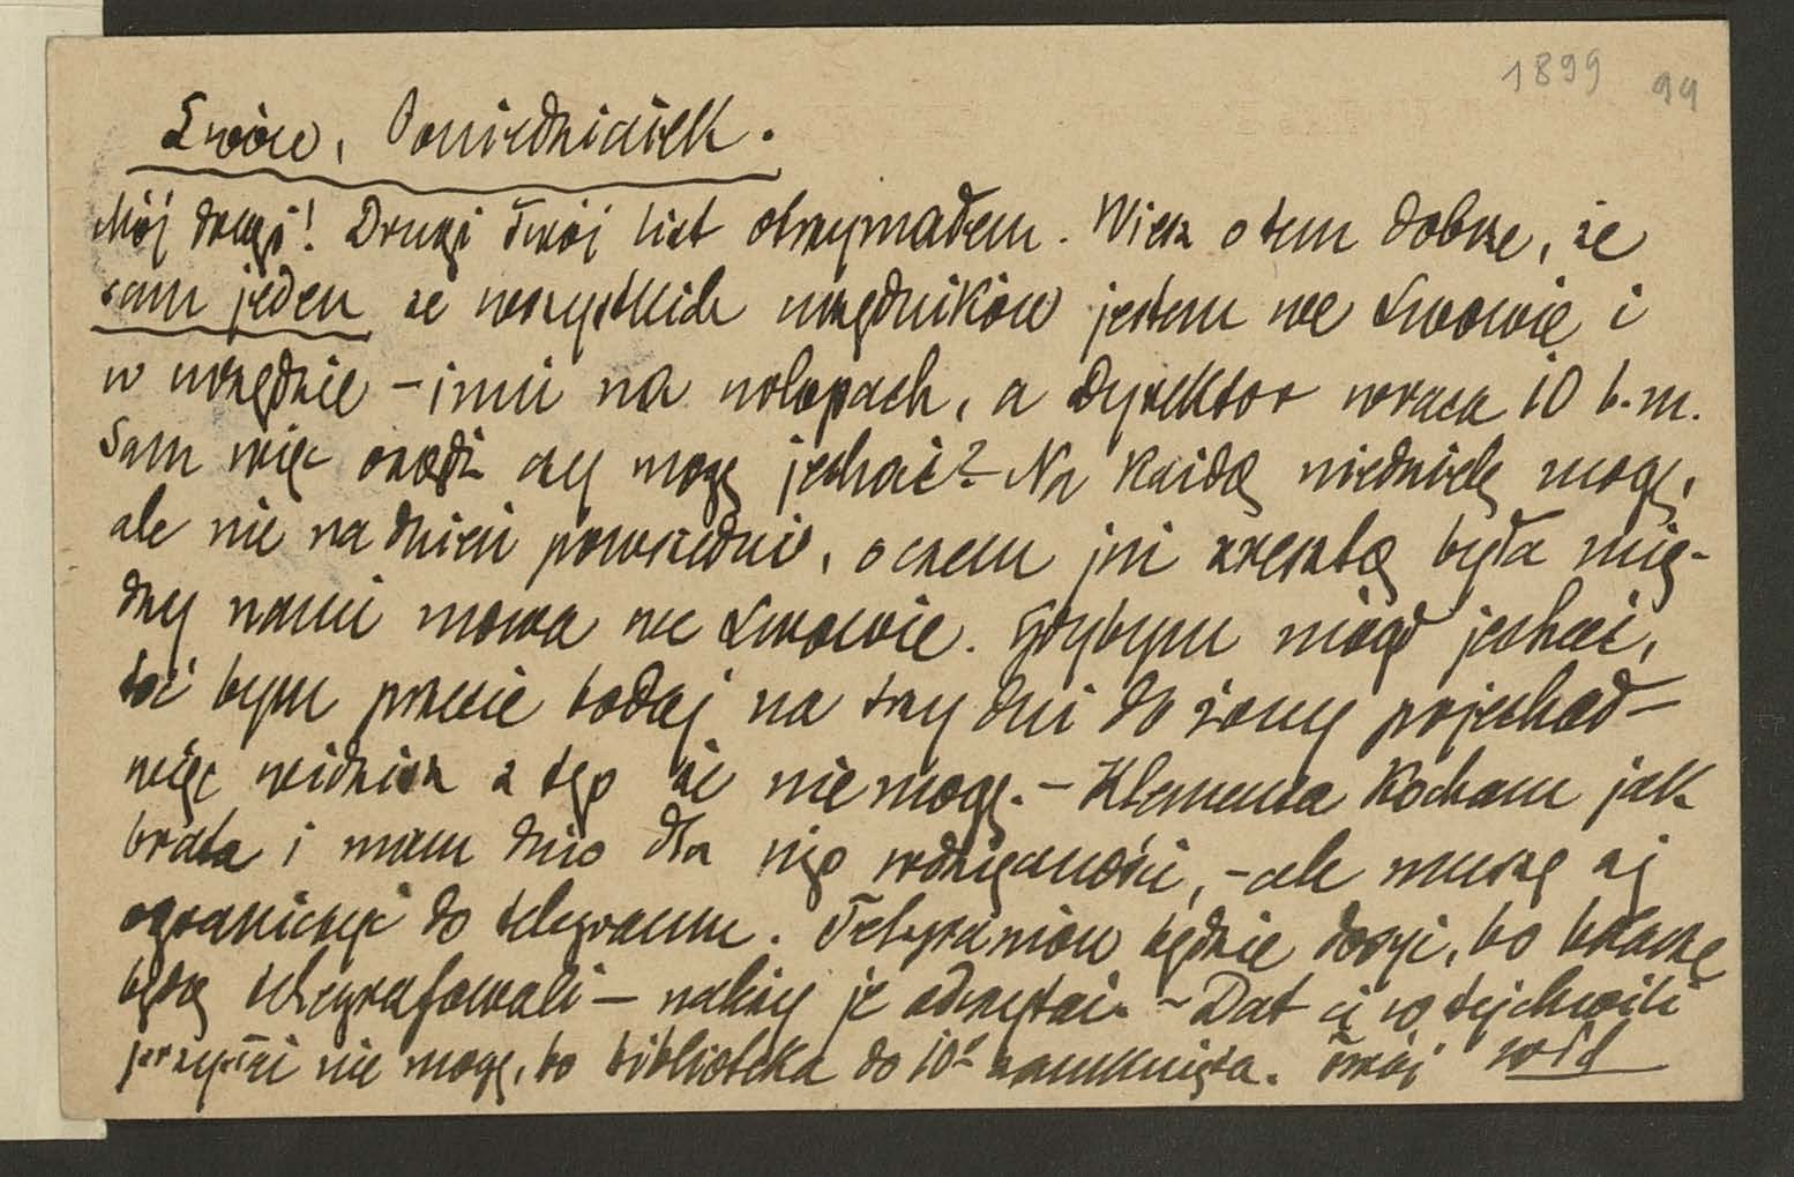 1899 99
Lwów, Poniedziałek.
Mój drogi! Drugi Twój list otrzymałem. Wiesz o tem dobrze, że
sam jeden ze wszystkich urzędników jestem we Lwowie i
w urzędzie – inni na urlopach, a dyrektor wraca 10 b.m.
Sam więc osądź czy mogę jechać? – Na każdą niedzielę mogę,
ale nie na dzień powszedni, o czem już zresztą była mię-
dzy nami mowa we Lwowie. Gdybym mógł jechać,
toć bym przecie bodaj na trzy dni do żony pojechał –
więc widzisz z tego że nie mogę. – Klemensa kocham jak
brata i mam dużo dla niego wdzięczności, – ale muszę się
ograniczyć do telegramu. Telegramów będzie dosyć, bo
będą telegrafowali – należy je odczytać. – Dat ci w tej chwili
przysłać nie mogę, bo biblioteka do 10 zamknięta. Twój Wld